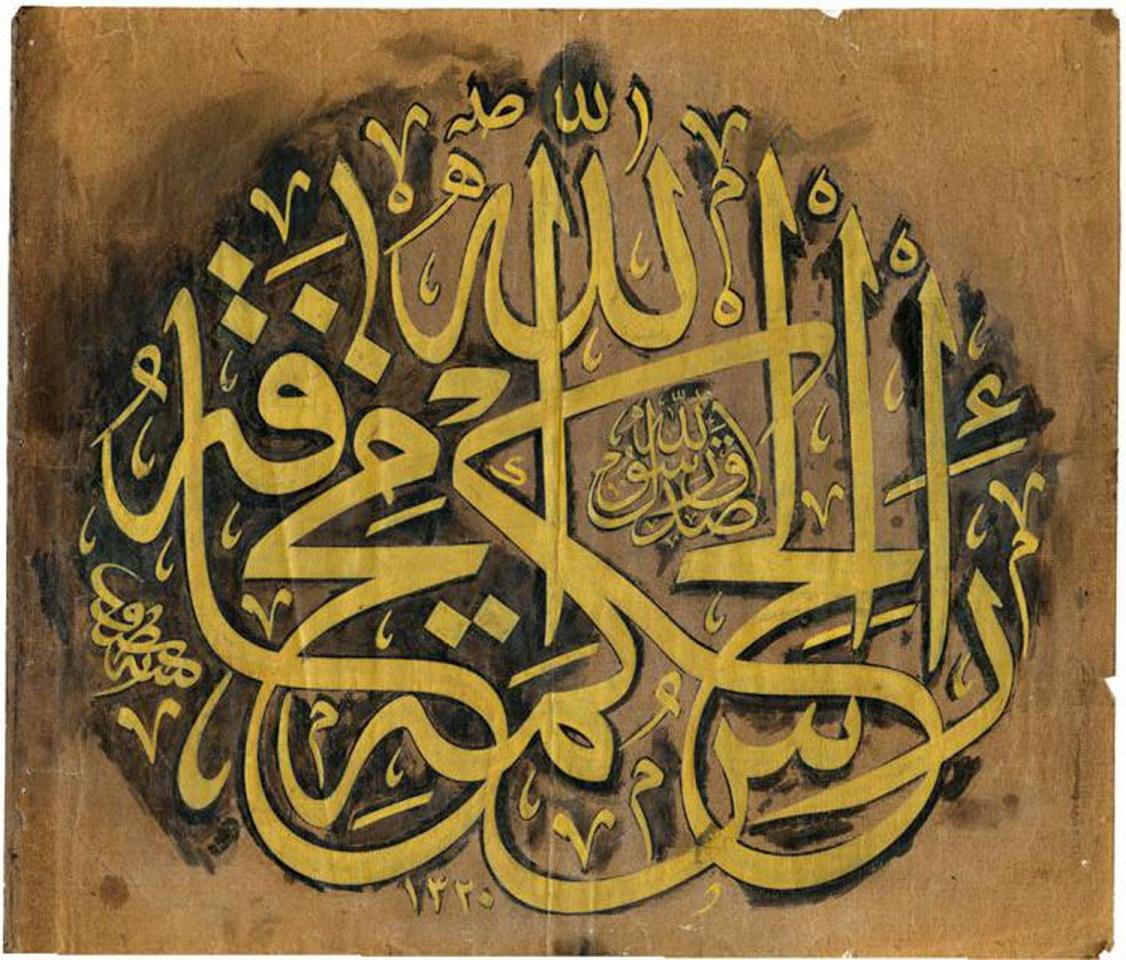 رَأْسُ الْحِكْمَةِ مَخَافَةُ اللّٰهِ
صدق رسول الله
١٣٢٠